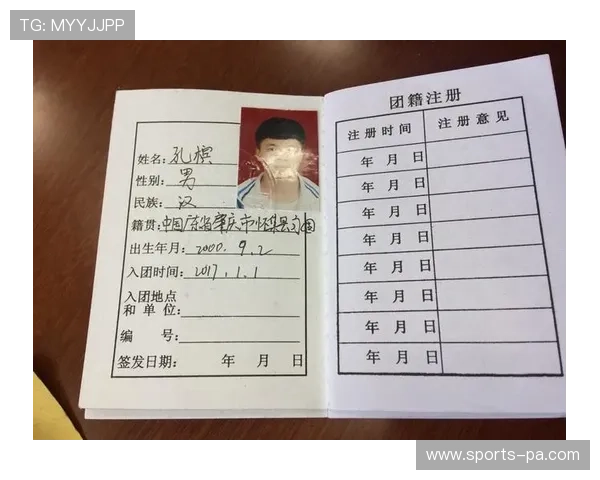 TG: MYYJJPP
姓名: 孔槟
性别: 男
民族: 汉
籍贯: 中国广东省肇庆市怀集县
出生年月: 2000.9.2
入团时间: 2017.1.1
入团地点
和 单 位:
编 号:
签发日期: 年 月 日
团籍注册
注 册 时 间 注 册 意 见
年 月 日
年 月 日
年 月 日
年 月 日
年 月 日
年 月 日
年 月 日
年 月 日
年 月 日
www.sports-pa.com